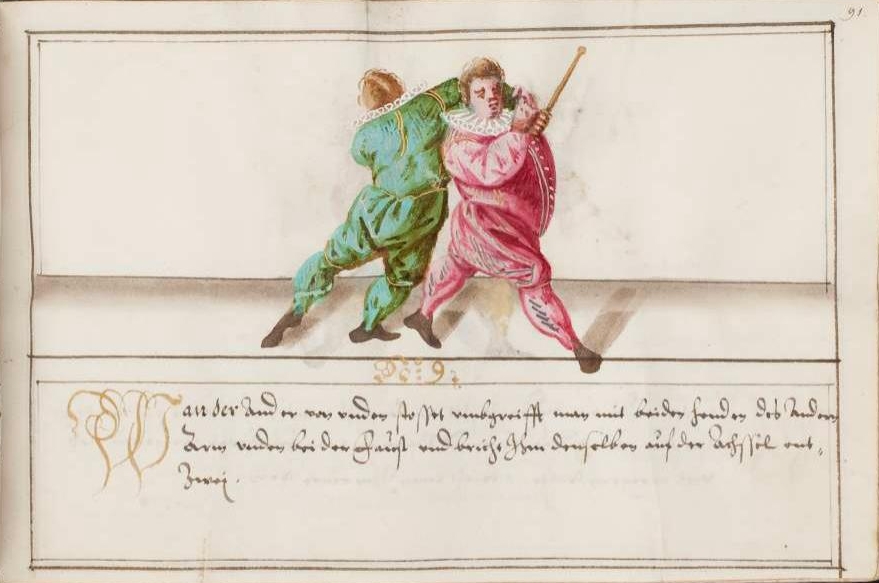 91.
No: 9:
Wan der Ander von vnden stosset vmbgreifft man mit beiden henden des Andern
Arm vnden bei der Faust vnd bricht Ihm denselben auf der Achssel ent-
Zwei.